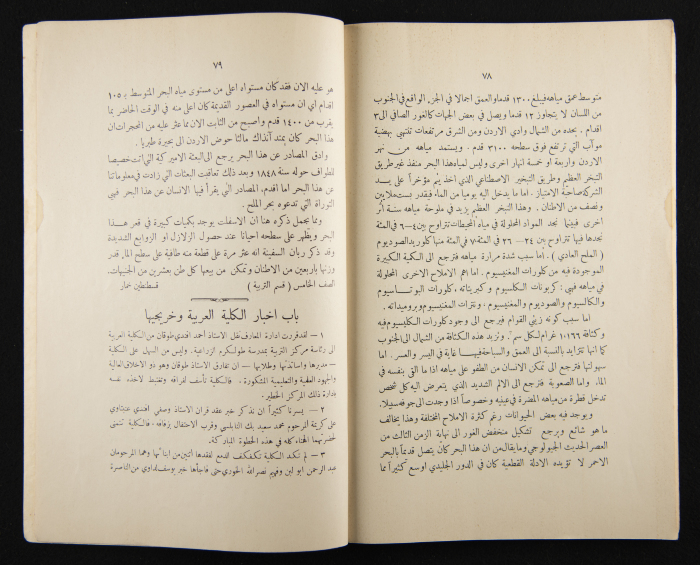 ٧٨
متوسط عمق مياهه فيبلغ ١٣٠٠ قدما والعمق اجمالا في الجزء الواقع في الجنوب
من اللسان لا يتجاوز ١٢ قدما ويصل في بعض الجهات كالغور الصافي الى ٣
اقدام . يحده من الشمال وادي الاردن ومن الشرق مرتفعات تنتهي بهضبة
موآب التي ترتفع فوق سطحه ٣١٠٠ قدم . ويستمد مياهه من نهر
الاردن واربعة او خمسة انهار اخرى وليس لمياه هذا البحر منفذ غير طريق
التبخر العظيم وطريق التبخير الاصطناعي الذي اخذ يتم مؤخراً على يد
الشركة صاحبة الامتياز . اما ما يدخل اليه يوميا من الماء فيقدر بستة ملايين
ونصف من الاطنان . وهذا التبخر العظيم يزيد في ملوحة مياهه سنة اثر
اخرى فبينما نجد المواد المحلولة في مياه المحيطات تتراوح بين ٤—٦ في المئة
نجدها فيها تتراوح بين ٢٤ — ٢٦ في المئة ٧ في المئة منها كلوريد الصوديوم
( الملح العادي ) . اما سبب شدة مرارة مياهه فترجع الى الكمية الكبيرة
الموجودة فيه من كلورات المغنيسيوم . اما اهم الاملاح الاخرى المحلولة
في مياهه فهي : كربونات الكلسيوم وكبريتاته ، كلورات البوتاسيوم
والكالسيوم والصوديوم والمغنيسيوم ، ونترات المغنيسيوم وبروميداته .
اما سبب كونه زيتي القوام فيرجع الى وجود كلورات الكلسيوم فيه
وكثافة ١٫١٦٦ غرام لكل سم٣. وتزيد هذه الكثافة من الشمال الى الجنوب
كما انها تتزايد بالنسبة الى العمق والسباحة فيها غاية في اليسر والعسر . اما
سهولتها فترجع الى تمكن الانسان من الطفو على مياهه اذا ما القى بنفسه في
الماء . واما الصعوبة فترجع الى الالم الشديد الذي يتعرض اليه كل شخص
تدخل قطرة من مياهه المضرة في عينيه وخصوصاً اذا وجدت الى جوفه سبيلا.
ويوجد فيه بعض الحيوانات رغم كثرة الاملاح المختلفة وهذا يخالف
ما هو شائع ويرجع تشكيل منخفض الغور الى نهاية الزمن الثالث من
العصر الحديث الجيولوجي وما يقال من ان هذا البحر كان يتصل قديماً بالبحر
الاحمر لا تؤيده الادلة القطعية كان في الدور الجليدي اوسع كثيراً مما
٧٩
هو عليه الان فقد كان مستواه اعلى من مستوى مياه البحر المتوسط بـ ١٠٥
اقدام اي ان مستواه في العصور القديمة كان اعلى منه في الوقت الحاضر بما
يقرب من ١٤٠٠ قدم واصبح من الثابت الان مما عثر عليه من المتحجرات ان
هذا البحر كان يمتد آنذاك مالئا حوض الاردن الى بحيرة طبريا .
وادق المصادر عن هذا البحر يرجع الى البعثة الاميركية التي اتت خصيصا
للطواف حوله سنة ١٨٤٨ وبعد ذلك تعاقبت البعثات التي زادت في معلوماتنا
عن هذا البحر اما اقدم المصادر التي يقرأ فيها الانسان عن هذا البحر فهي
التوراة التي تدعوه بحر الملح .
ومما يجمل ذكره هنا ان الاسفلت يوجد بكميات كبيرة في قعر هذا
البحر ويظهر على سطحه احيانا عند حصول الزلازل او الزوابع الشديدة
وقد ذكر ربان السفينة انه عثر مرة على قطعة منه طافية على سطح الماء قدر
وزنها باربعين من الاطنان وتمكن من بيعها كل طن بعشرين من الجنيهات.
الصف الخامس ( قسم التربية ) قسطنطين خمار
باب اخبار الكلية العربية وخريجيها
١ — لقد قررت ادارة المعارف نقل الاستاذ احمد افندي طوقان من الكلية العربية
الى رئاسة مركز التربية بمدرسة طولكرم الزراعية . وليس من السهل على الكلية
— مديرها واساتذتها وطلابها — ان تفارق الاستاذ طوقان وهو ذو الاخلاق العالية
والجهود العلمية والتعليمية المشكورة . فالكلية تأسف لفراقه وتغتبط لاخذه نفسه
بادارة ذلك المركز الخطير .
٢ — يسرنا كثيراً ان نذكر خبر عقد قران الاستاذ وصفي افندي عنبتاوي
على كريمة المرحوم محمد سعيد بك النابلسي وقرب الاحتفال بزفافه . فالكلية تتمنى
لحضرتهما الهناء كله في هذه الخطوة المباركة .
٣ — لم تكد الكلية تكفكف الدمع لفقدها اثنين من ابنائها وهما المرحومان
عبد الرحمن ابو لبن وفهيم نصر الله الخوري حتى فاجأها خبر يوسف لداوي من الناصرة